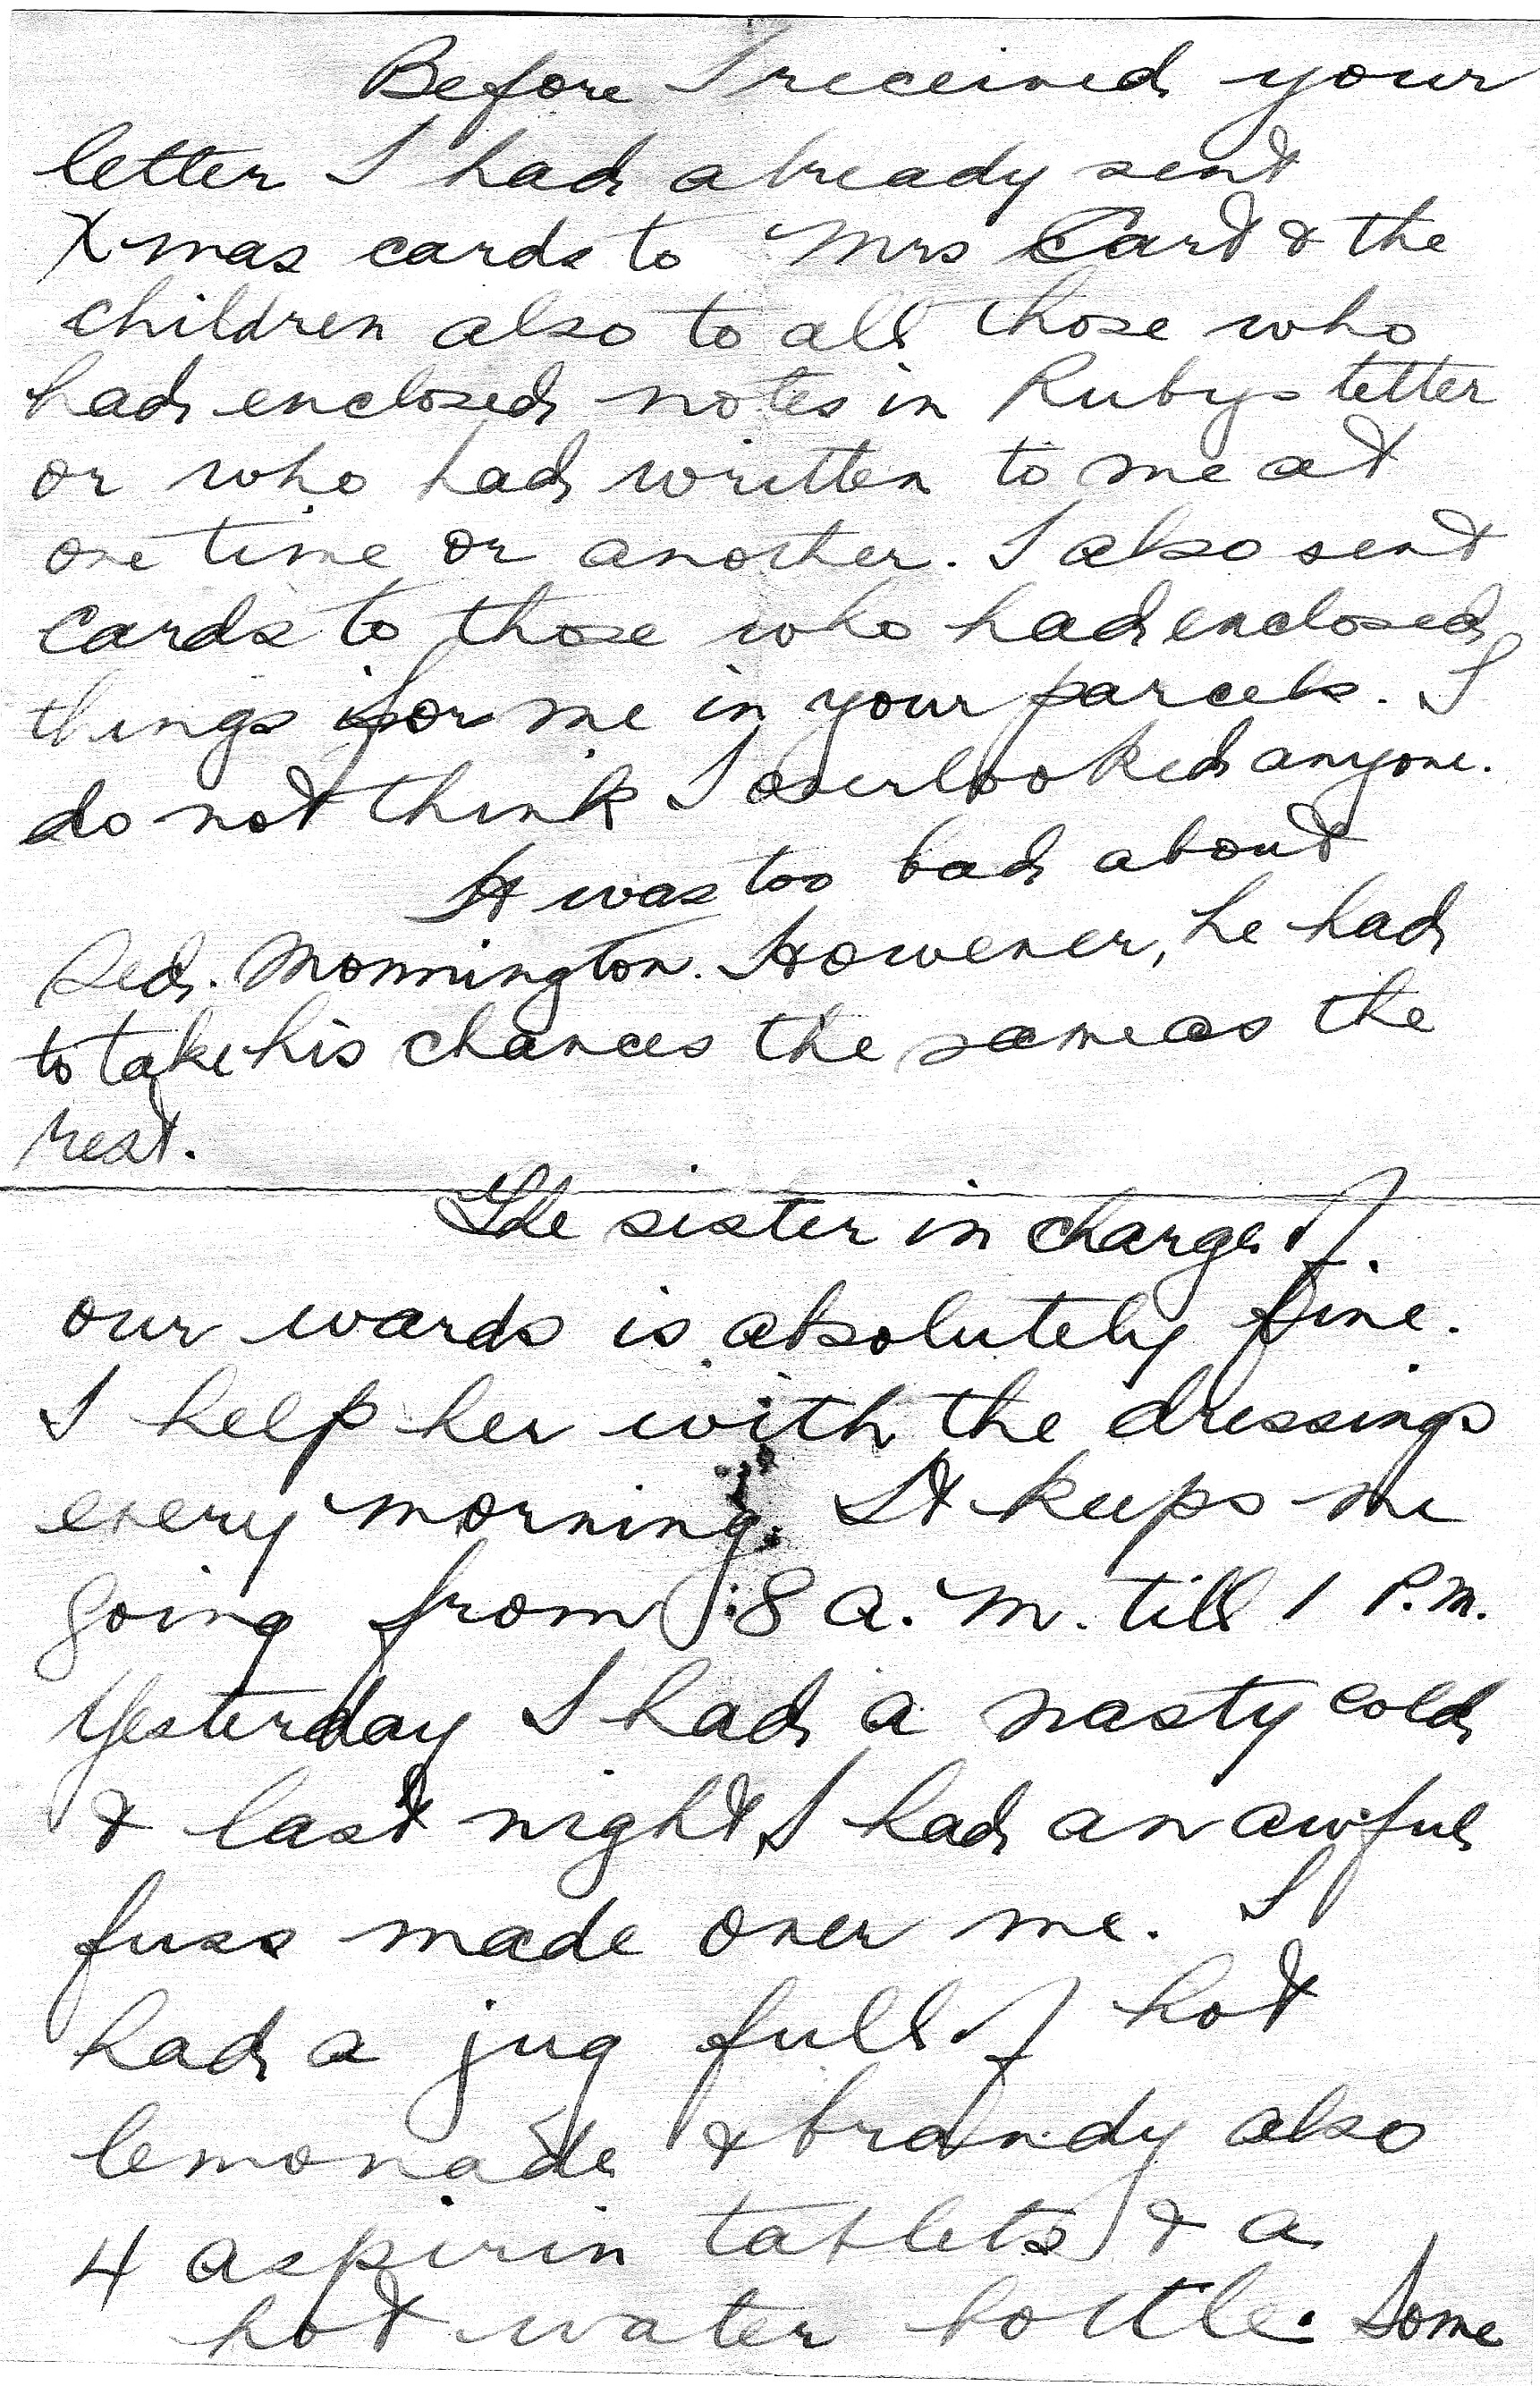 Before I received your
letter I had already sent
Xmas cards to Mrs Cart & the
children also to all those who
had enclosed notes in Rubys letter
or who had written to me at
one time or another. I also sent
cards to those who had enclosed
things for me in your parcels. I
do not think I overlooked anyone.
It was too bad about
Monnington. However, he had
to take his chances the same as the
rest.
The sister in charge of
our wards is absolutely fine.
I help her with the dressings
every morning. It keeps me
going from 8 a.m. till 1 P.M.
Yesterday I had a nasty cold
& last night I had an awful
fuss made over me. I
had a jug full of hot
lemonade & brandy also
4 aspirin tablets & a
hot water bottle. Some